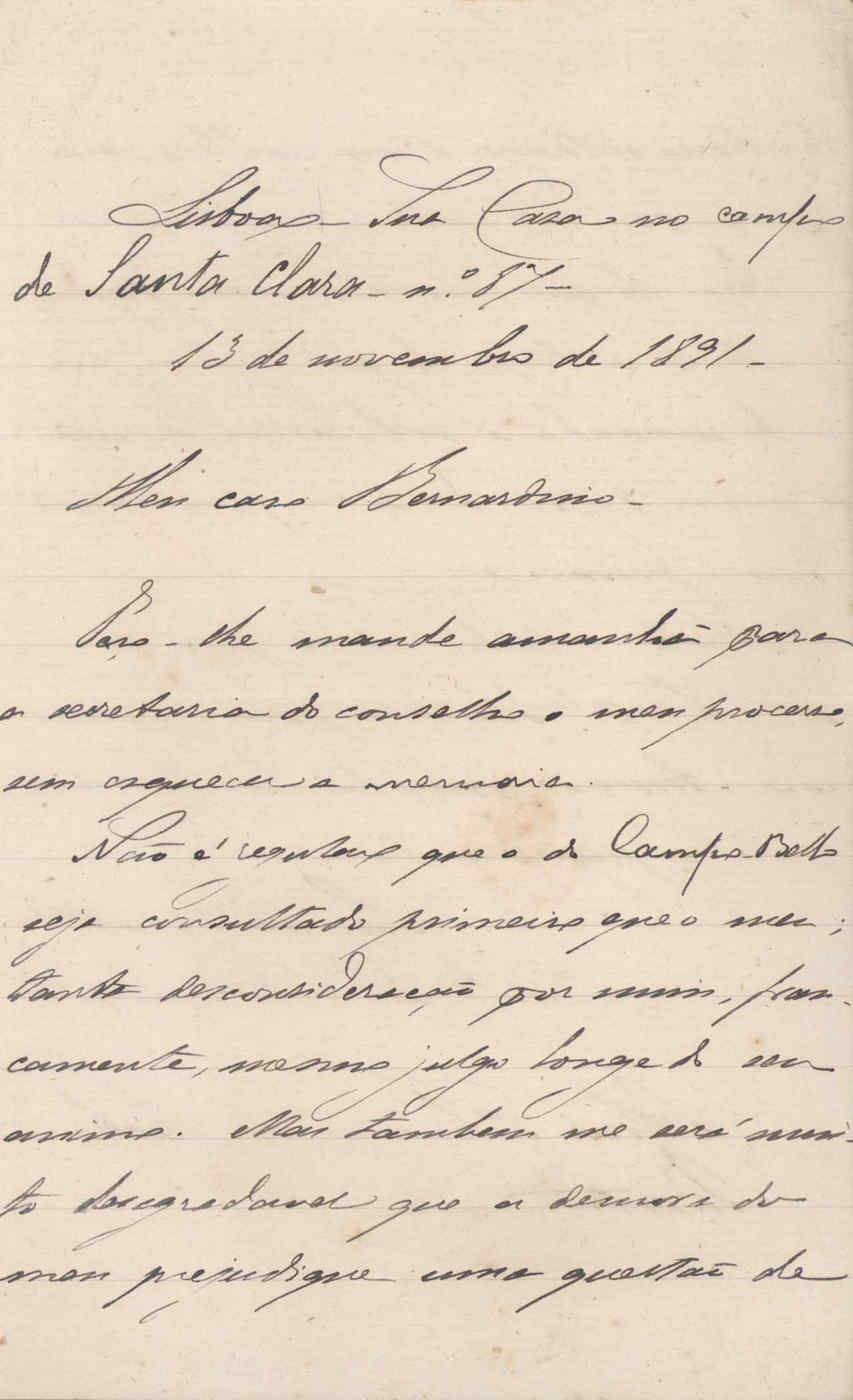 Lisboa - Sua Casa no campo
de Santa Clara - n.º 87 -
13 de novembro de 1891 -
Meu caro Bernardino -
Peço-lhe mande amanhã para
a secretaria do conselho o meu processo,
sem esquecer a memoria.
Não é regular que o do Campo Bello
seja consultado primeiro que o meu;
tanta desconsideração por mim, fran-
camente, mesmo julgo longe do seu
animo. Mas tambem me será mui-
to desagradavel que a demora do
meu prejudique uma questão de